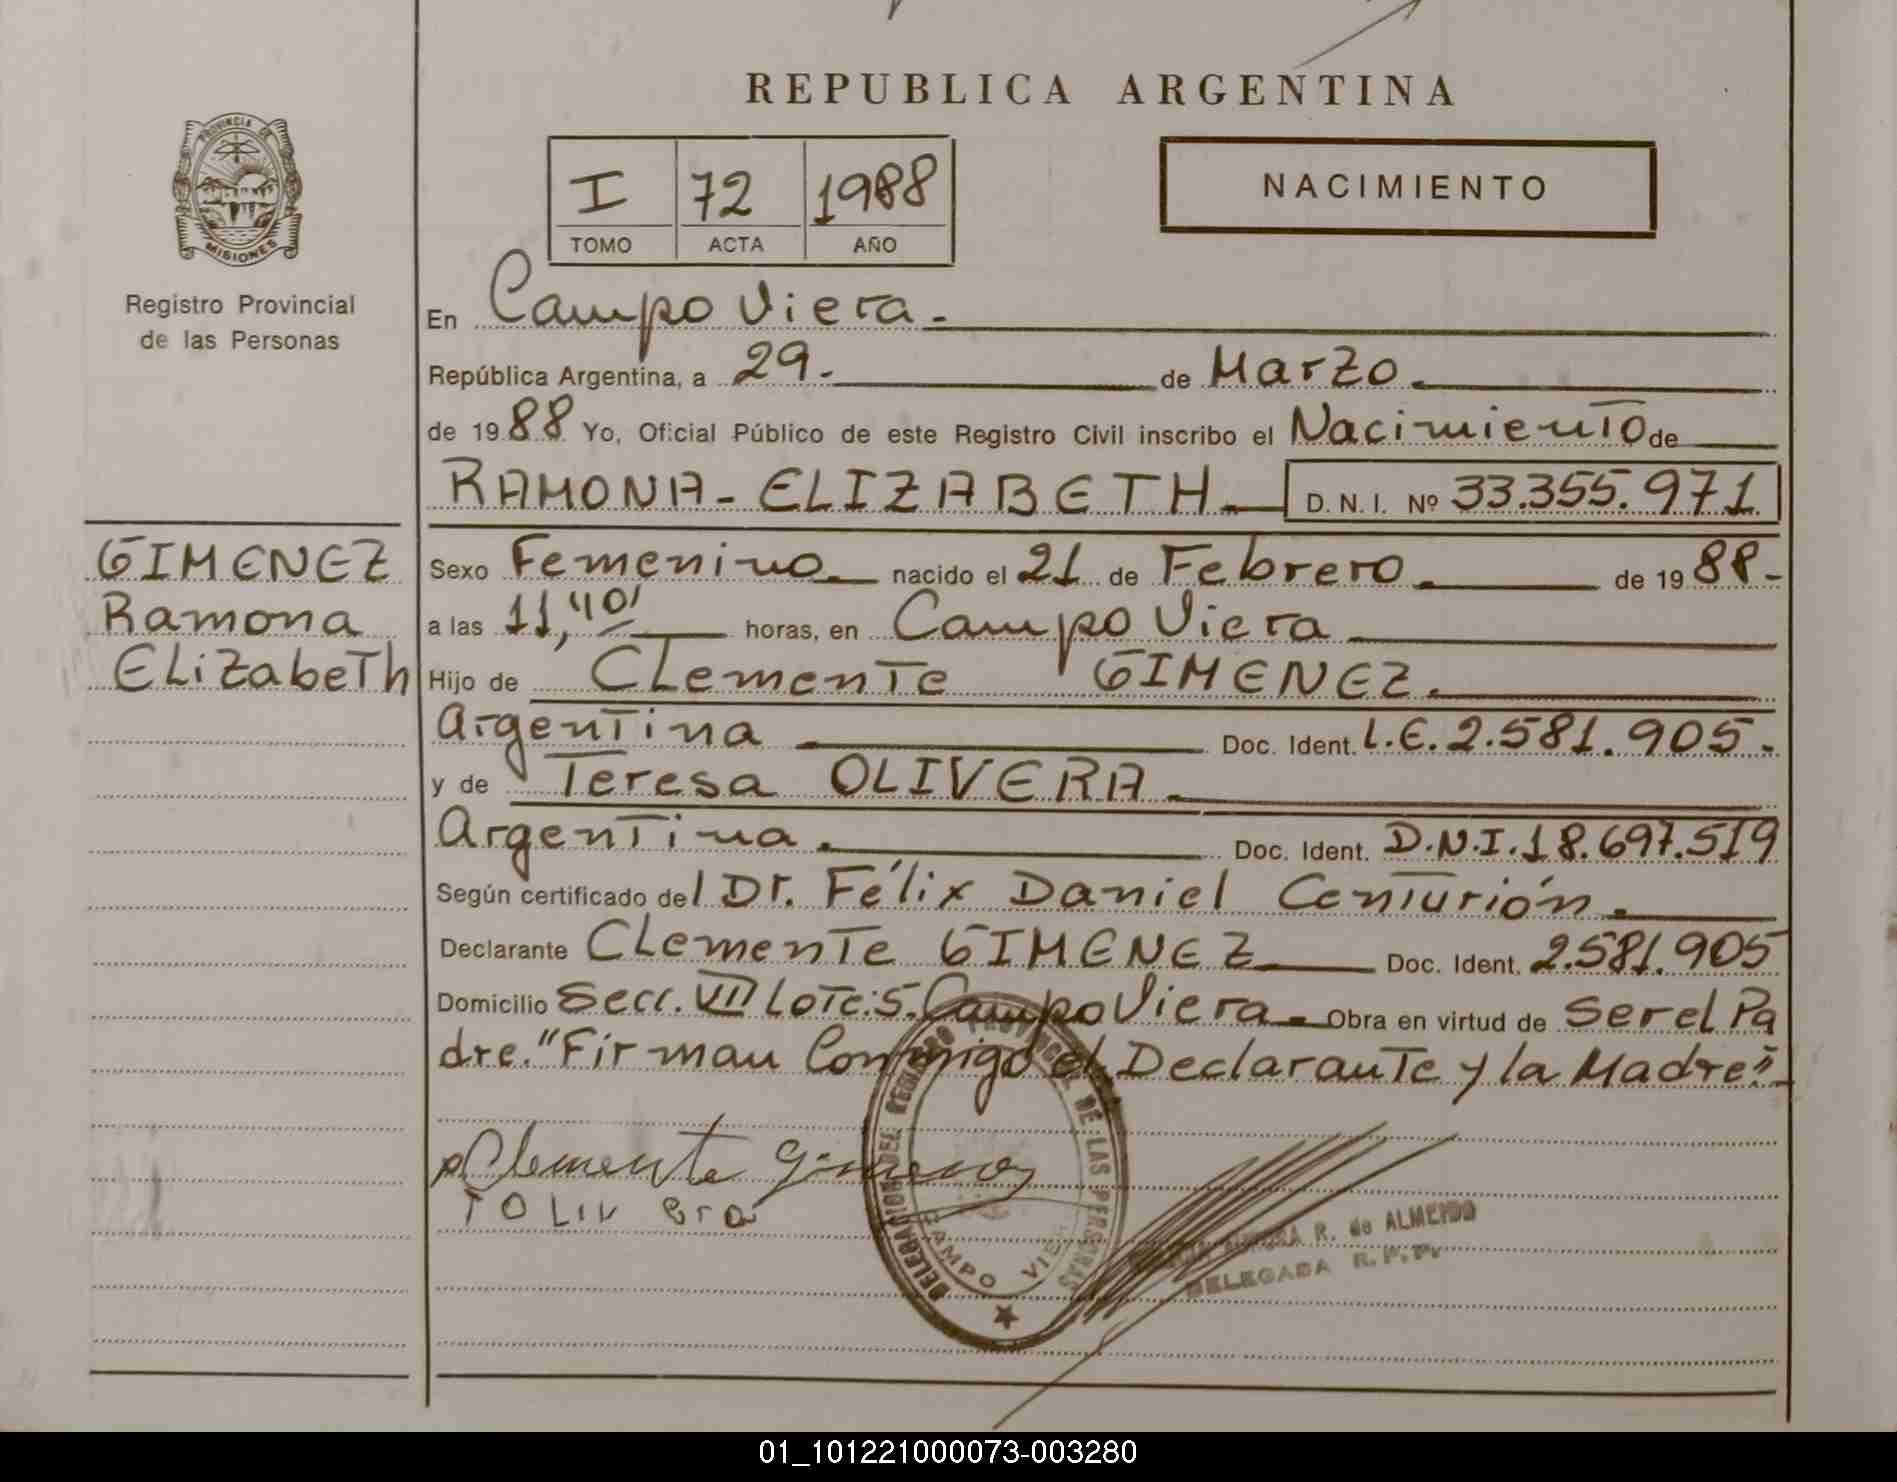 REPUBLICA ARGENTINA
PROVINCIA DE
MISIONES
Registro Provincial
de las Personas
I 72 1988
TOMO ACTA AÑO
NACIMIENTO
En Campo Viera.-
República Argentina, a 29.- de Marzo.
de 1988 Yo, Oficial Público de este Registro Civil inscribo el Nacimiento de
RAMONA - ELIZABETH.- D. N. I. Nº 33.355.971
GIMENEZ
Ramona
ElizabeTh
Sexo Femenino. nacido el 21 de Febrero. de 1988-
a las 11,40' horas, en Campo Viera
Hijo de Clemente GIMENEZ.
Argentina Doc. Ident. L.E. 2.581.905-
y de Teresa OLIVERA.
Argentina. Doc. Ident. D.N.I. 18.697.519
Según certificado del Dr. Félix Daniel Centurión.
Declarante Clemente GIMENEZ Doc. Ident. 2.581.905
Domicilio Secc. VII Lote: 5. Campo Viera. Obra en virtud de Ser el Pa
dre. "Firman Conmigo el Declarante y la Madre"-
Clemente Gimenez
T OLIVera
DELEGACION DEL REGISTRO PROVINCIAL DE LAS PERSONAS
CAMPO VIERA
R. de ALMEIDO
DELEGADA R. P. P.
01_101221000073-003280